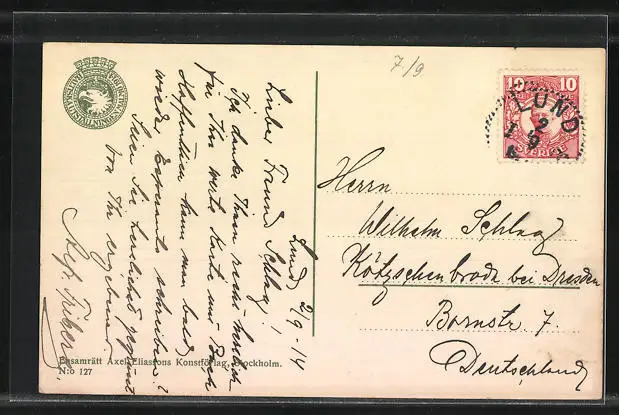 7./9
10 10
LUND
2
9
SVERIGE
Lund 2/9 - 14
Lieber Freund Schlag!
Ich danke Ihnen recht herzlich
für Ihre werte Karte und
Hoffentlich kann man bald
wieder Esperanto schreiben?
Seien Sie herzlichst gegrüsst
von Ihr ergebener
Herrn
Wilhelm Schlag
Kötzschenbroda bei Dresden
Bornstr. 7.
Deutschland
Ensamrätt Axel Eliassons Konstförlag, Stockholm.
N:o 127